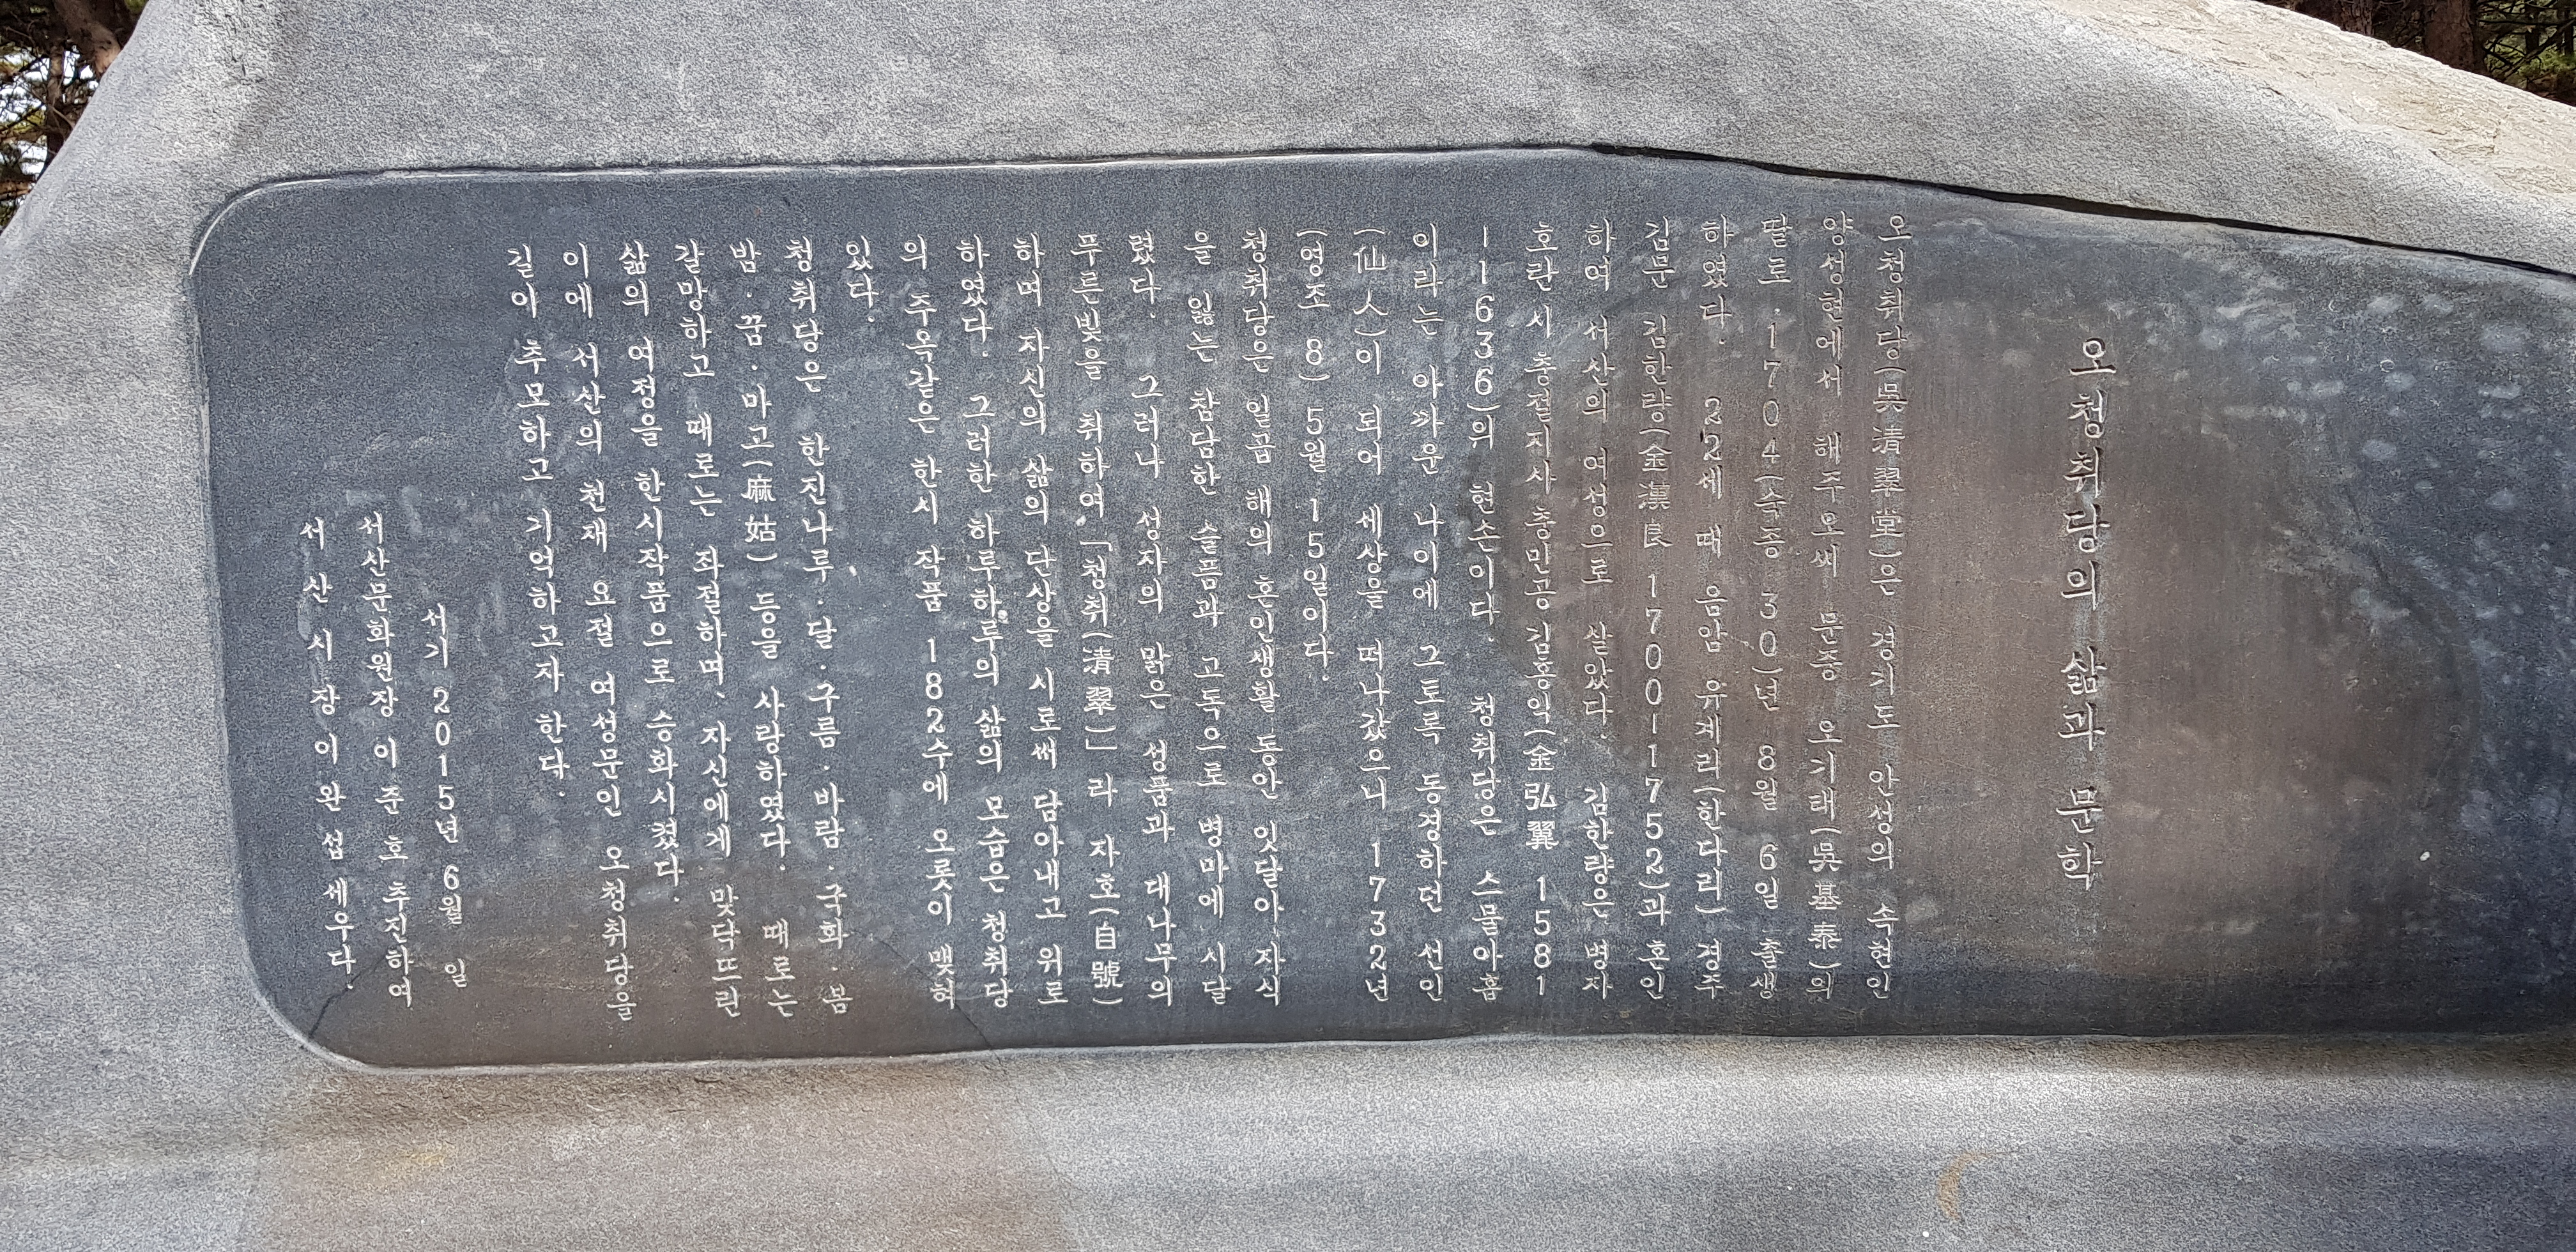 오청취당의 삶과 문학
오청취당(吳淸翠堂)은 경기도 안성의 속현인
양성현에서 해주오씨 문중 오기태(吳基泰)의
딸로 1704(숙종 30)년 8월 6일 출생
하였다. 22세 때 음암 유계리(한다리) 경주
김문 김한량(金漢良 1700-1752)과 혼인
하여 서산의 여성으로 살았다. 김한량은 병자
호란 시 충절지사 충민공 김홍익(金弘翼 1581
-1636)의 현손이다. 청취당은 스물아홉
이라는 아까운 나이에 그토록 동경하던 선인
(仙人)이 되어 세상을 떠나갔으니 1732년
(영조 8) 5월 15일이다.
청취당은 일곱 해의 혼인생활 동안 잇달아 자식
을 잃는 참담한 슬픔과 고독으로 병마에 시달
렸다. 그러나 성자의 맑은 성품과 대나무의
푸른빛을 취하여 「청취(淸翠)」라 자호(自號)
하며 자신의 삶의 단상을 시로써 담아내고 위로
하였다. 그러한 하루하루의 삶의 모습은 청취당
의 주옥같은 한시 작품 182수에 오롯이 맺혀
있다.
청취당은 한진나루·달·구름·바람·국화·봄
밤·꿈·마고(麻姑) 등을 사랑하였다. 때로는
갈망하고 때로는 좌절하며, 자신에게 맞닥뜨린
삶의 여정을 한시작품으로 승화시켰다.
이에 서산의 천재 요절 여성문인 오청취당을
길이 추모하고 기억하고자 한다.
서기 2015년 6월 일
서산문화원장 이준호 추진하여
서산시장 이완섭 세우다.